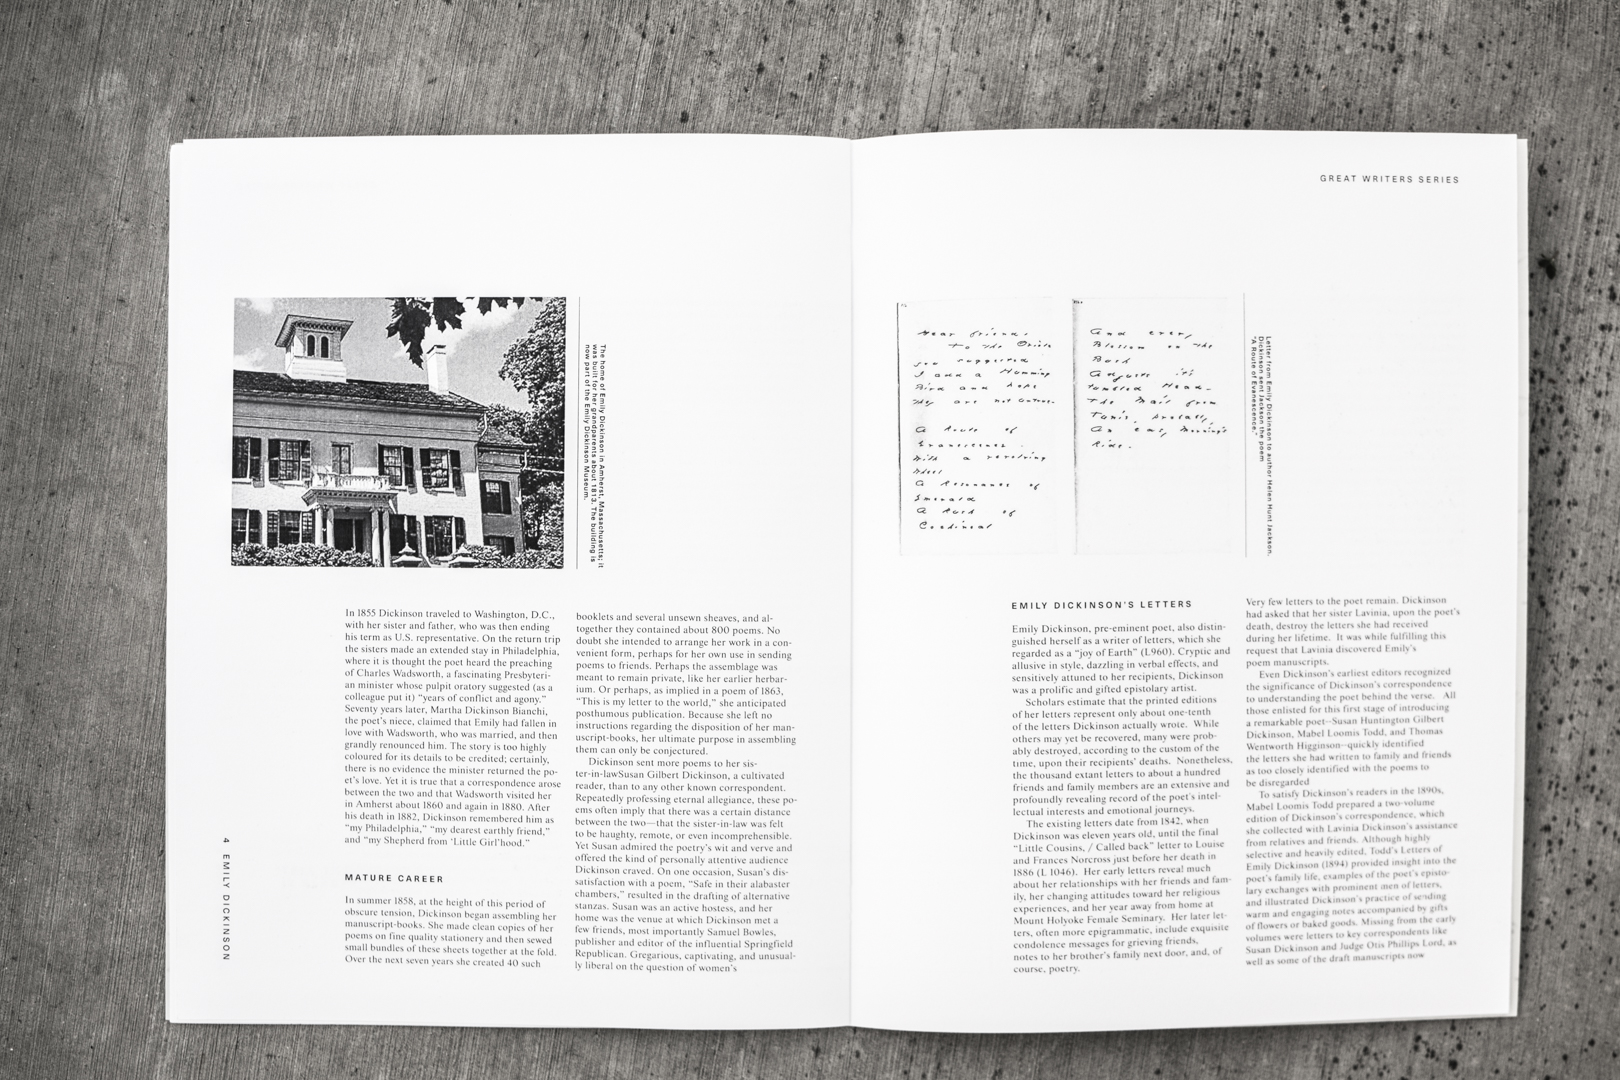 GREAT WRITERS SERIES
The home of Emily Dickinson in Amherst, Massachusetts; it
was built for her grandparents about 1813. The building is
now part of the Emily Dickinson Museum.
In 1855 Dickinson traveled to Washington, D.C.,
with her sister and father, who was then ending
his term as U.S. representative. On the return trip
the sisters made an extended stay in Philadelphia,
where it is thought the poet heard the preaching
of Charles Wadsworth, a fascinating Presbyteri-
an minister whose pulpit oratory suggested (as a
colleague put it) “years of conflict and agony.”
Seventy years later, Martha Dickinson Bianchi,
the poet's niece, claimed that Emily had fallen in
love with Wadsworth, who was married, and then
grandly renounced him. The story is too highly
coloured for its details to be credited; certainly,
there is no evidence the minister returned the po-
et's love. Yet it is true that a correspondence arose
between the two and that Wadsworth visited her
in Amherst about 1860 and again in 1880. After
his death in 1882, Dickinson remembered him as
“my Philadelphia,” “my dearest earthly friend,”
and “my Shepherd from ‘Little Girl’hood.”
MATURE CAREER
In summer 1858, at the height of this period of
obscure tension, Dickinson began assembling her
manuscript-books. She made clean copies of her
poems on fine quality stationery and then sewed
small bundles of these sheets together at the fold.
Over the next seven years she created 40 such
booklets and several unsewn sheaves, and al-
together they contained about 800 poems. No
doubt she intended to arrange her work in a con-
venient form, perhaps for her own use in sending
poems to friends. Perhaps the assemblage was
meant to remain private, like her earlier herbar-
ium. Or perhaps, as implied in a poem of 1863,
“This is my letter to the world,” she anticipated
posthumous publication. Because she left no
instructions regarding the disposition of her man-
uscript-books, her ultimate purpose in assembling
them can only be conjectured.
Dickinson sent more poems to her sis-
ter-in-lawSusan Gilbert Dickinson, a cultivated
reader, than to any other known correspondent.
Repeatedly professing eternal allegiance, these po-
ems often imply that there was a certain distance
between the two—that the sister-in-law was felt
to be haughty, remote, or even incomprehensible.
Yet Susan admired the poetry's wit and verve and
offered the kind of personally attentive audience
Dickinson craved. On one occasion, Susan's dis-
satisfaction with a poem, “Safe in their alabaster
chambers,” resulted in the drafting of alternative
stanzas. Susan was an active hostess, and her
home was the venue at which Dickinson met a
few friends, most importantly Samuel Bowles,
publisher and editor of the influential Springfield
Republican. Gregarious, captivating, and unusual-
ly liberal on the question of women's
4 EMILY DICKINSON
Dear friend.
To the Oriole
you suggested
I add a Humming
Bird and hope
they are not untrue.
A Route of
Evanescence.
With a revolving
Wheel
A Resonance of
Emerald
A Rush of
Cochineal
And every
Blossom on the
Bush
Adjusts it's
tumbled Head.
The Mail from
Tunis, probably,
An easy Morning's
Ride.
Letter from Emily Dickinson to author Helen Hunt Jackson.
Dickinson sent Jackson the poem
“A Route of Evanescence.”
EMILY DICKINSON'S LETTERS
Emily Dickinson, pre-eminent poet, also distin-
guished herself as a writer of letters, which she
regarded as a “joy of Earth” (L960). Cryptic and
allusive in style, dazzling in verbal effects, and
sensitively attuned to her recipients, Dickinson
was a prolific and gifted epistolary artist.
Scholars estimate that the printed editions
of her letters represent only about one-tenth
of the letters Dickinson actually wrote. While
others may yet be recovered, many were prob-
ably destroyed, according to the custom of the
time, upon their recipients' deaths. Nonetheless,
the thousand extant letters to about a hundred
friends and family members are an extensive and
profoundly revealing record of the poet's intel-
lectual interests and emotional journeys.
The existing letters date from 1842, when
Dickinson was eleven years old, until the final
“Little Cousins, / Called back” letter to Louise
and Frances Norcross just before her death in
1886 (L 1046). Her early letters reveal much
about her relationships with her friends and fam-
ily, her changing attitudes toward her religious
experiences, and her year away from home at
Mount Holyoke Female Seminary. Her later let-
ters, often more epigrammatic, include exquisite
condolence messages for grieving friends,
notes to her brother's family next door, and, of
course, poetry.
Very few letters to the poet remain. Dickinson
had asked that her sister Lavinia, upon the poet's
death, destroy the letters she had received
during her lifetime. It was while fulfilling this
request that Lavinia discovered Emily's
poem manuscripts.
Even Dickinson's earliest editors recognized
the significance of Dickinson's correspondence
to understanding the poet behind the verse. All
those enlisted for this first stage of introducing
a remarkable poet--Susan Huntington Gilbert
Dickinson, Mabel Loomis Todd, and Thomas
Wentworth Higginson--quickly identified
the letters she had written to family and friends
as too closely identified with the poems to
be disregarded
To satisfy Dickinson's readers in the 1890s,
Mabel Loomis Todd prepared a two-volume
edition of Dickinson's correspondence, which
she collected with Lavinia Dickinson's assistance
from relatives and friends. Although highly
selective and heavily edited, Todd's Letters of
Emily Dickinson (1894) provided insight into the
poet's family life, examples of the poet's episto-
lary exchanges with prominent men of letters,
and illustrated Dickinson's practice of sending
warm and engaging notes accompanied by gifts
of flowers or baked goods. Missing from the early
volumes were letters to key correspondents like
Susan Dickinson and Judge Otis Phillips Lord, as
well as some of the draft manuscripts now